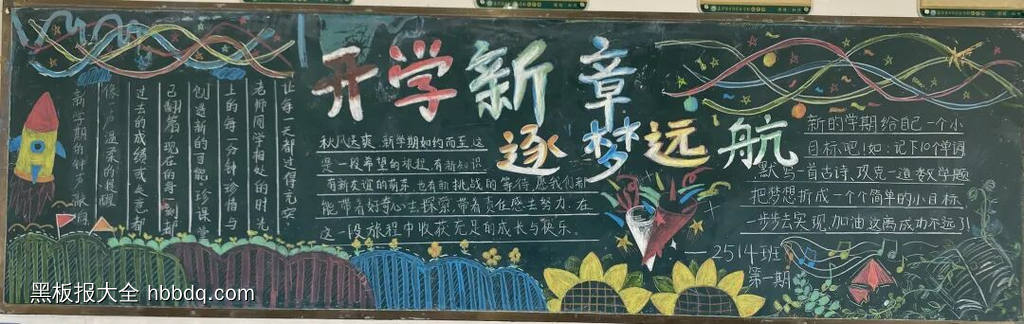 开学新章
逐梦远航
新学期的钟声敲
像一声温柔的提醒
过去的成绩或失意都
已翻篇 现在的每一刻都
创造新的可能.珍课堂
上的每一分钟 珍惜与
老师同学相处的时光
让每一天都过得充实
秋风送爽 新学期如约而至 这
是一段希望的旅程.有新知识
有新友谊的萌芽 也有新挑战的等待.愿我们都
能带着好奇心去探索.带着责任感去努力.在
这一段旅程中收获充足的成长与快乐。
新的学期给自己一个小
目标吧!如:记下10个单词
默写一首古诗,攻克一道数学题
把梦想拆成一个个简单的小目标
一步步去实现.加油这离成功不远了
—2514班
第一期
黑板报大全 hbbdq.com